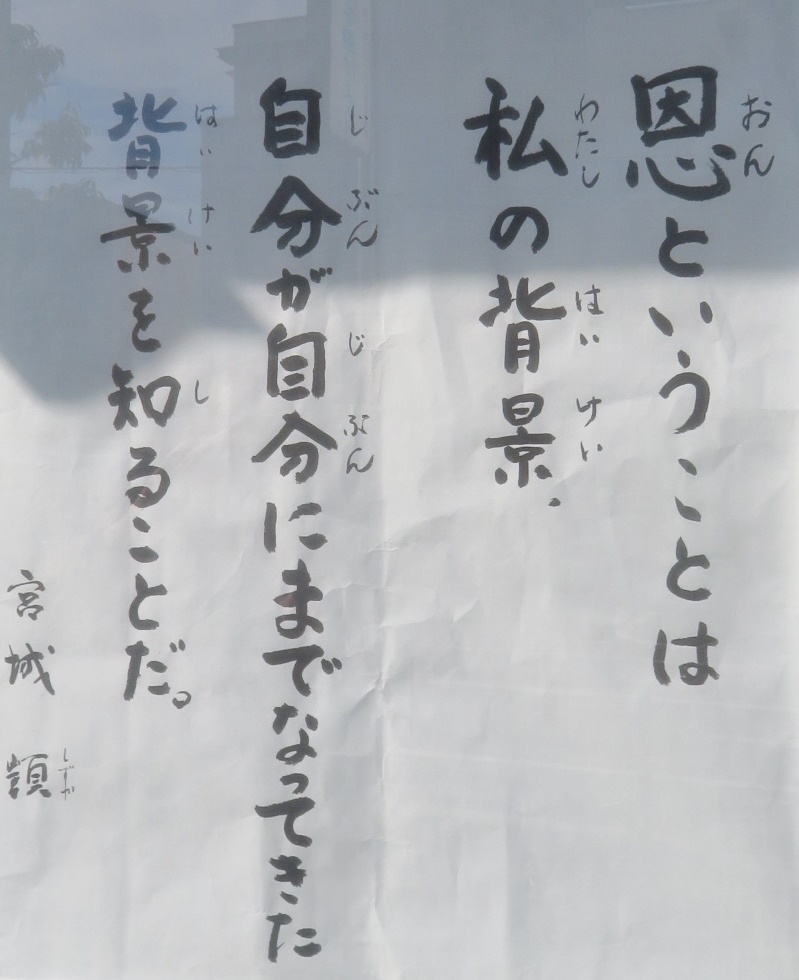 恩ということは
おん
私の背景.
わたし はい けい
自分が自分にまでなってきた
じ ぶん じ ぶん
背景を知ることだ。
はい けい し
宮城 顗
しずか